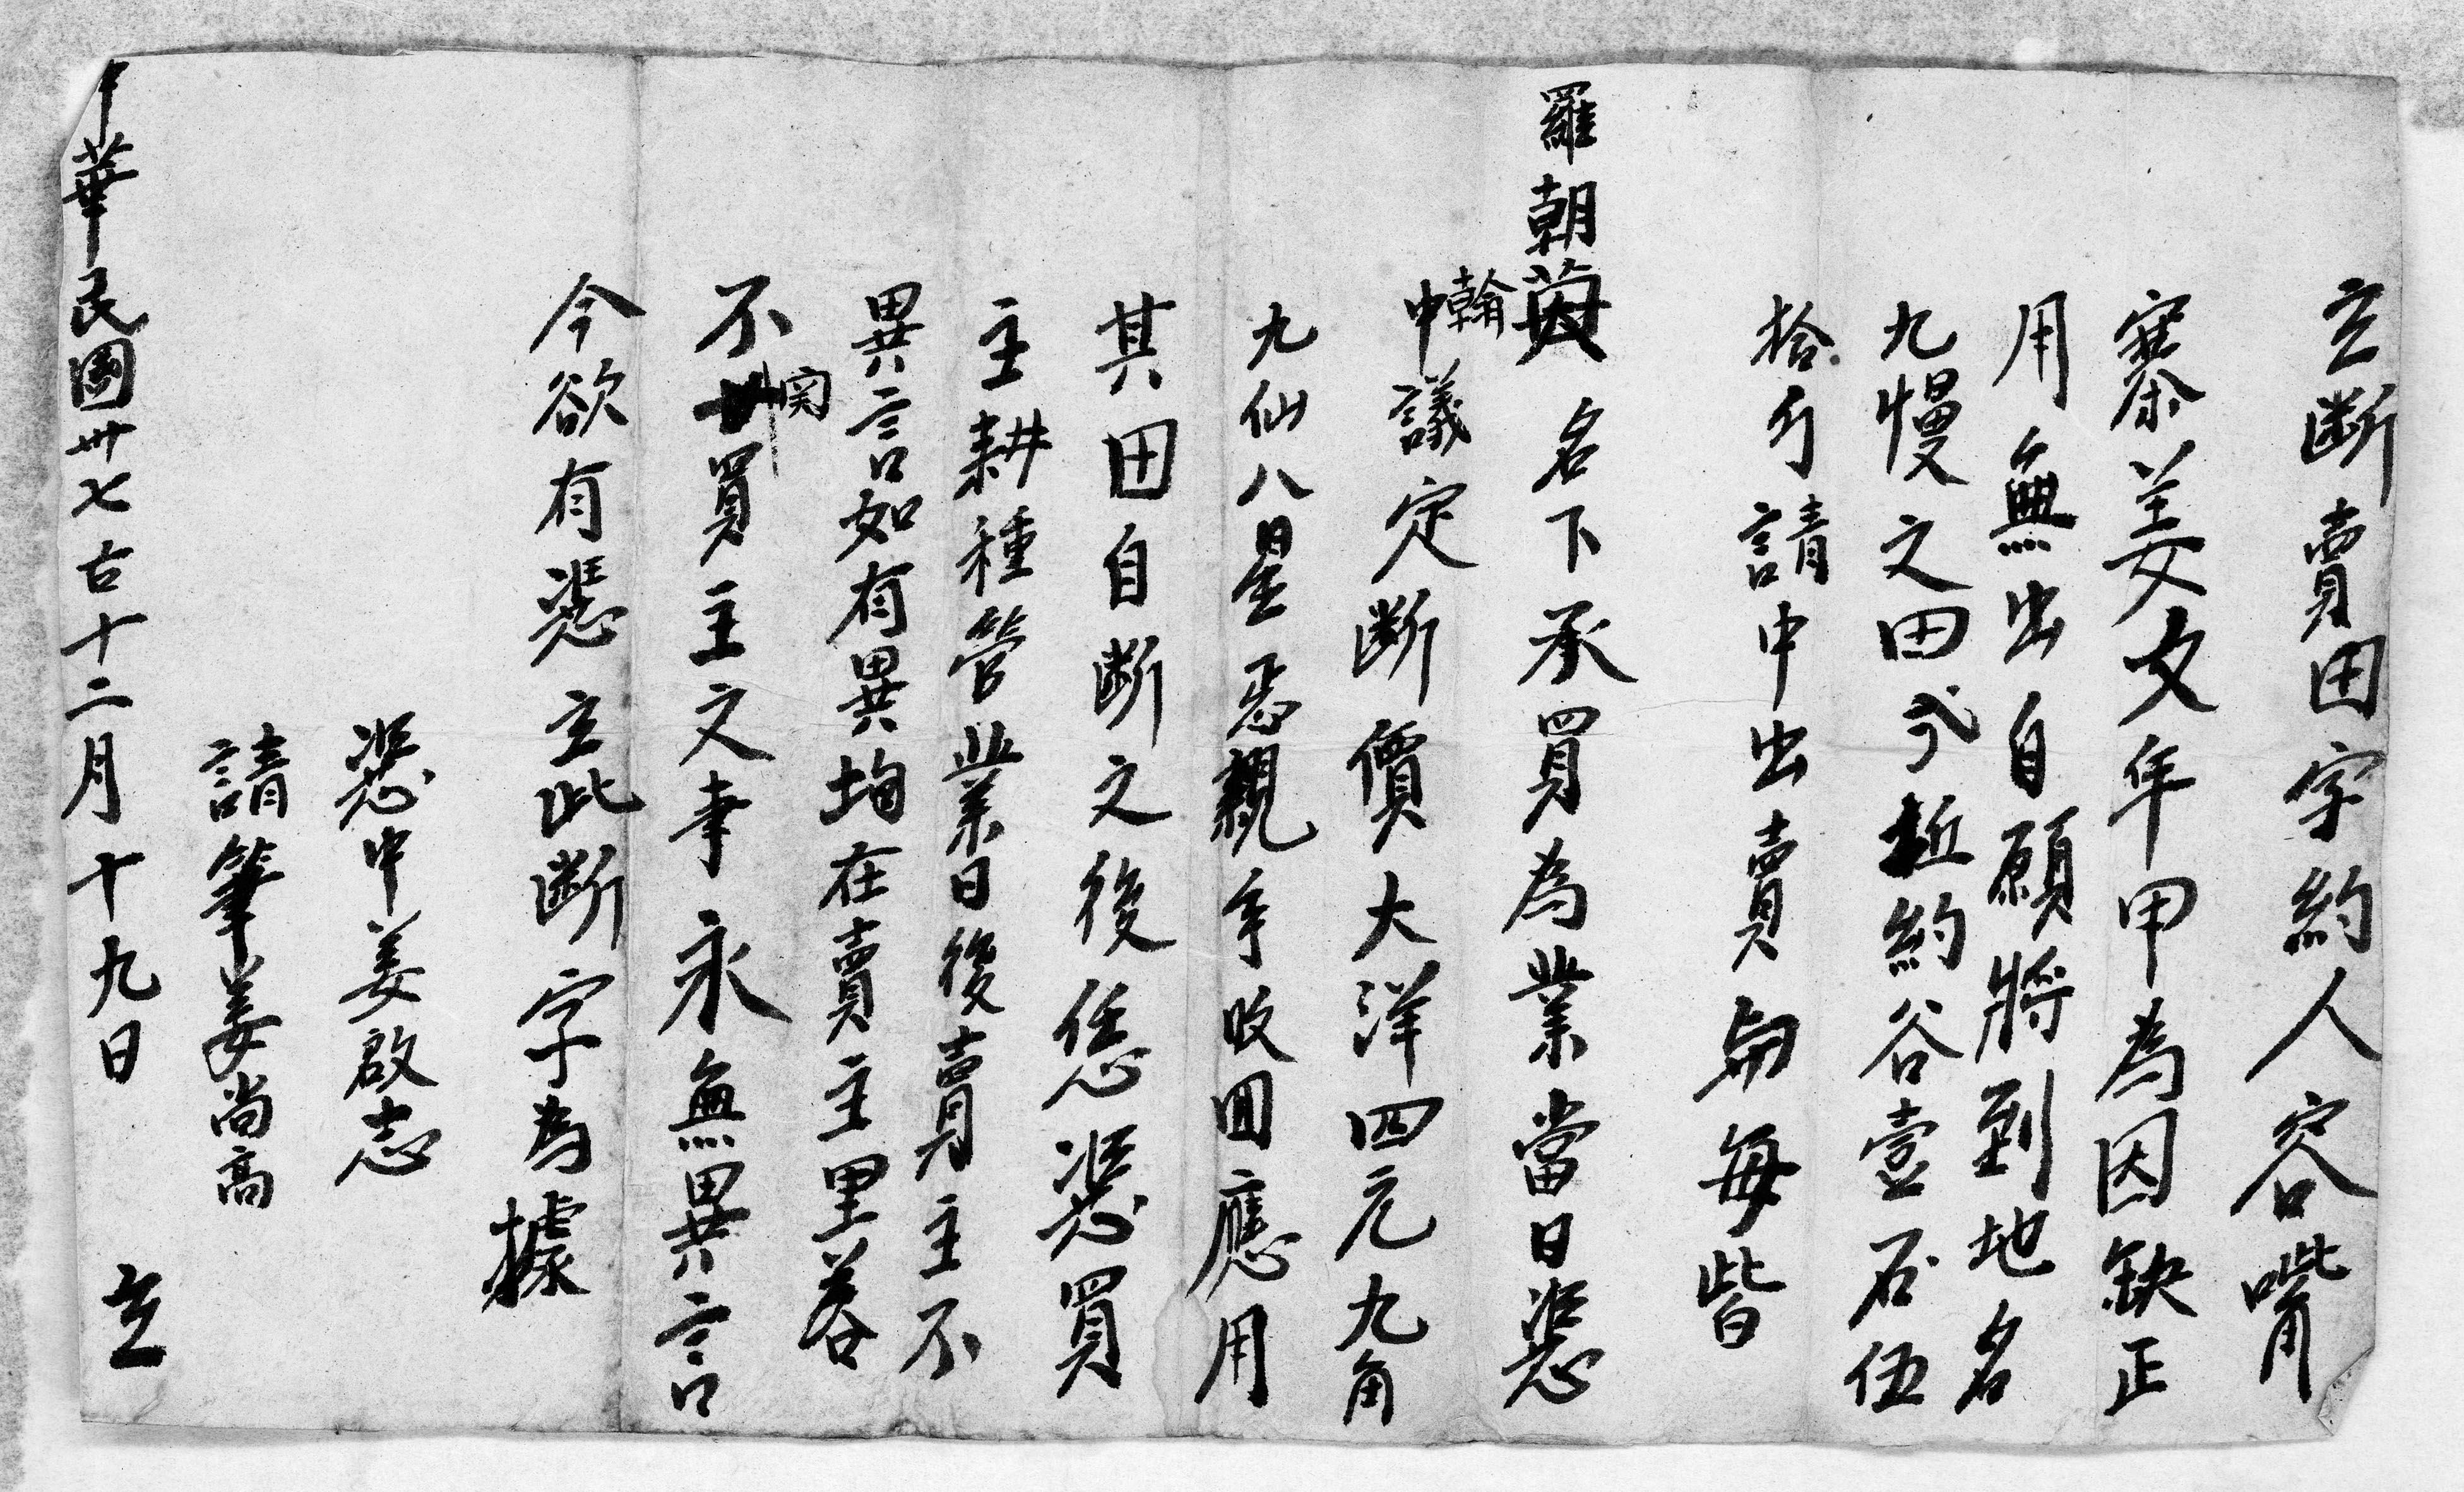 立断賣田字約人容嘴
寨姜文年甲為因缺正
用無出自願將到地名
九慢之田弍坵約谷壹石伍
拾斤請中出賣與每皆
羅朝翰名下承買為業當日凴
中議定断價大洋四元九角
九仙八星悉親手收回應用
其田自断之後恁凴買
主耕種管業日後賣主不
異言如有異均在賣主里落
不関買主之事永無異言
今欲有凴立此断字為據
凴中姜啟志
請筆姜尚高
中華民國卅七古十二月十九日 立